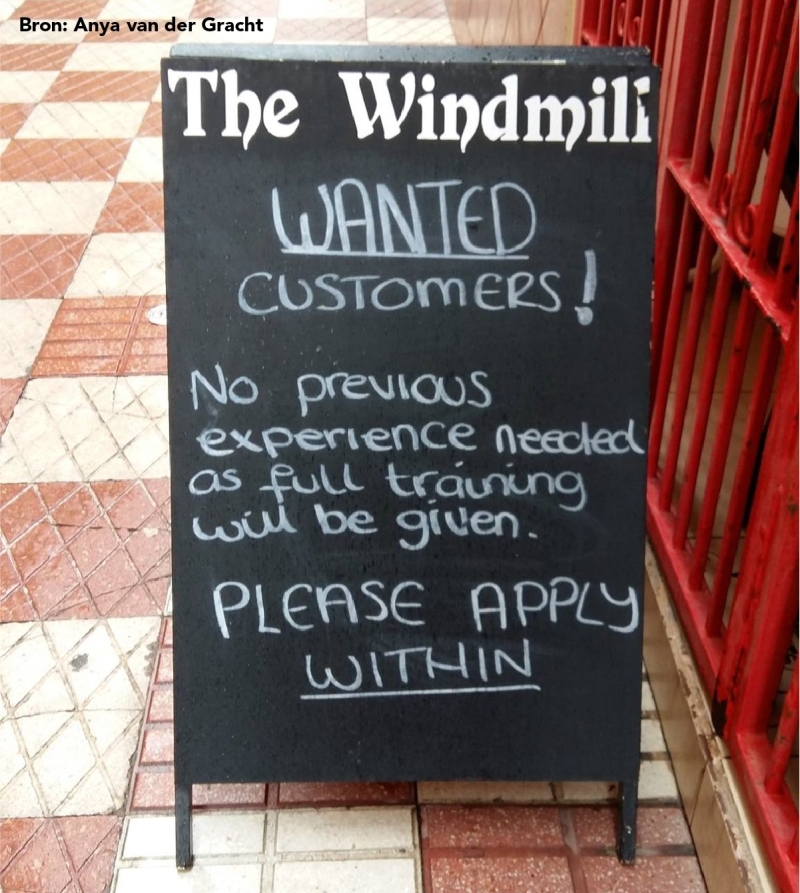 Bron: Anya van der Gracht
The Windmill
WANTED
CUSTOMERS!
No previous
experience needed
as full training
will be given.
PLEASE APPLY
WITHIN